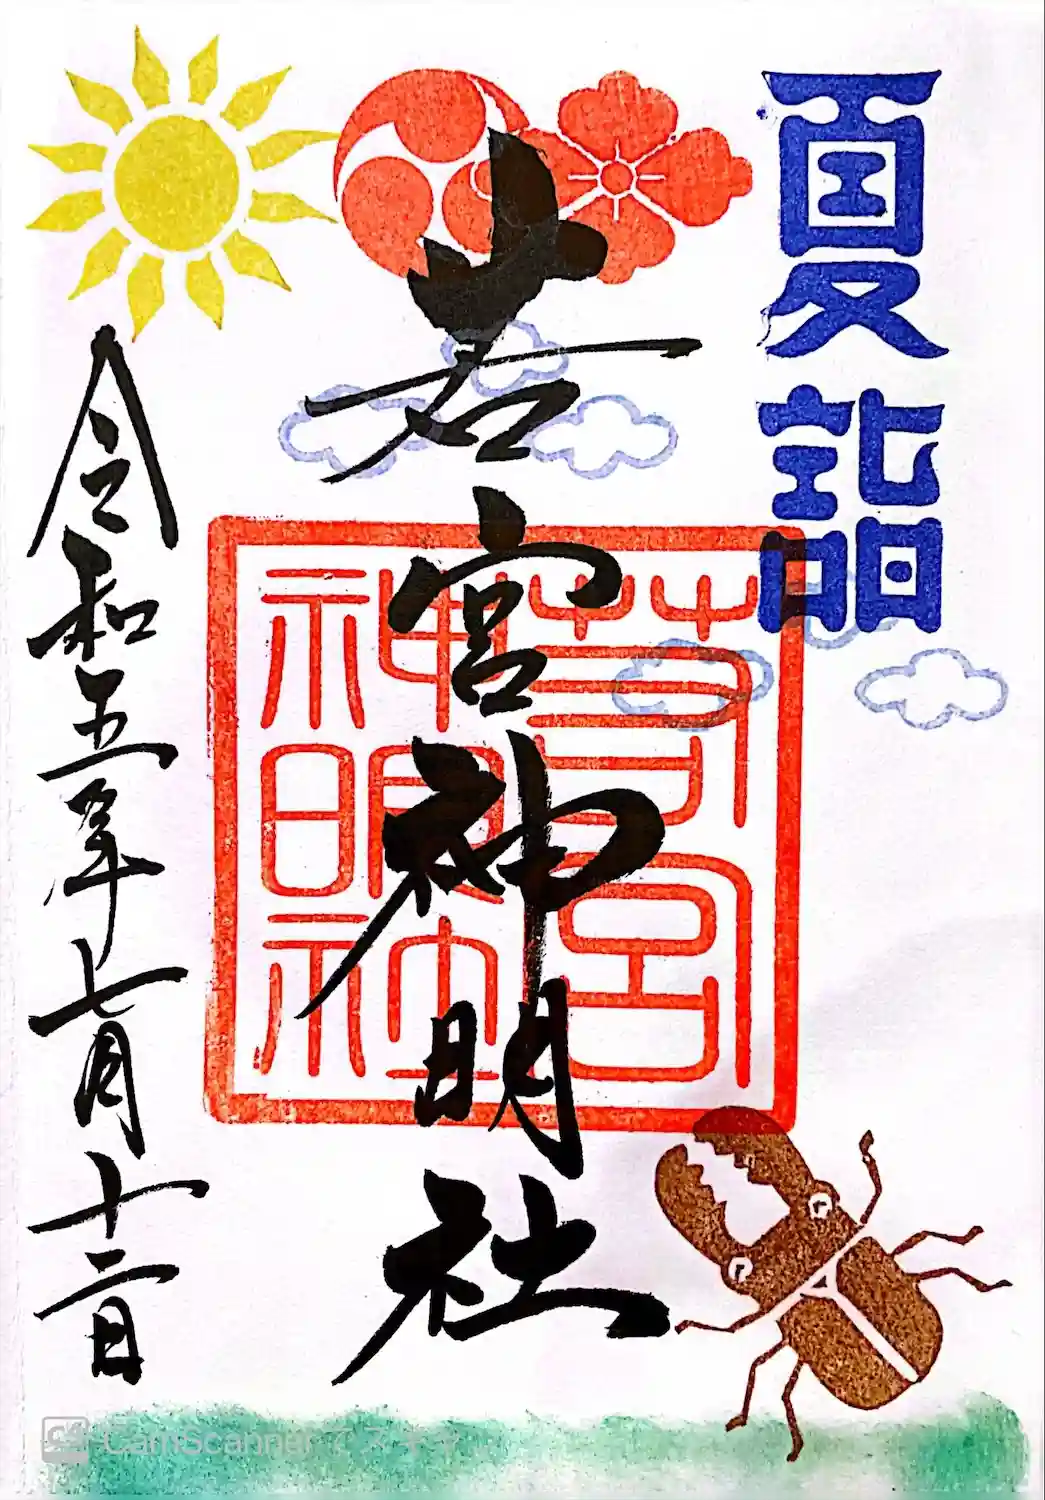 夏詣
若宮神明社
若宮
神明社
令和五年七月十二日
CamScanner でスキャン